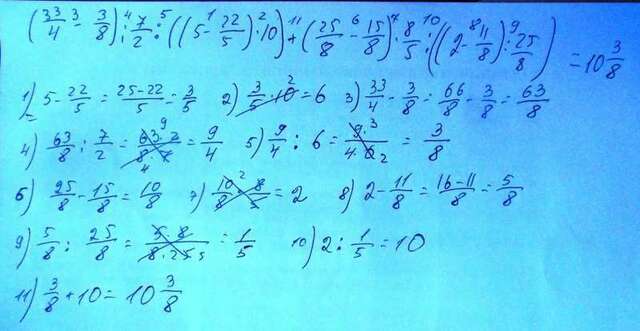 (33/4 - 3/8) : 7/2 : ((5 - 22/5) · 10) + (25/8 - 15/8) · 8/5 : ((2 - 11/8) : 25/8) = 10 3/8
1) 5 - 22/5 = (25-22)/5 = 3/5 2) 3/5 · 10 = 6 3) 33/4 - 3/8 = 66/8 - 3/8 = 63/8
4) 63/8 : 7/2 = (63·2)/(8·7) = 9/4 5) 9/4 : 6 = 9/(4·6) = 3/8
6) 25/8 - 15/8 = 10/8 7) 10/8 · 8/5 = 2 8) 2 - 11/8 = (16-11)/8 = 5/8
9) 5/8 : 25/8 = (5·8)/(8·25) = 1/5 10) 2 : 1/5 = 10
11) 3/8 + 10 = 10 3/8